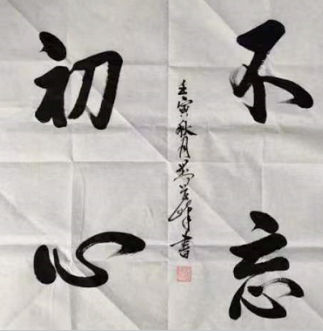 不忘
初心
壬寅秋月
书